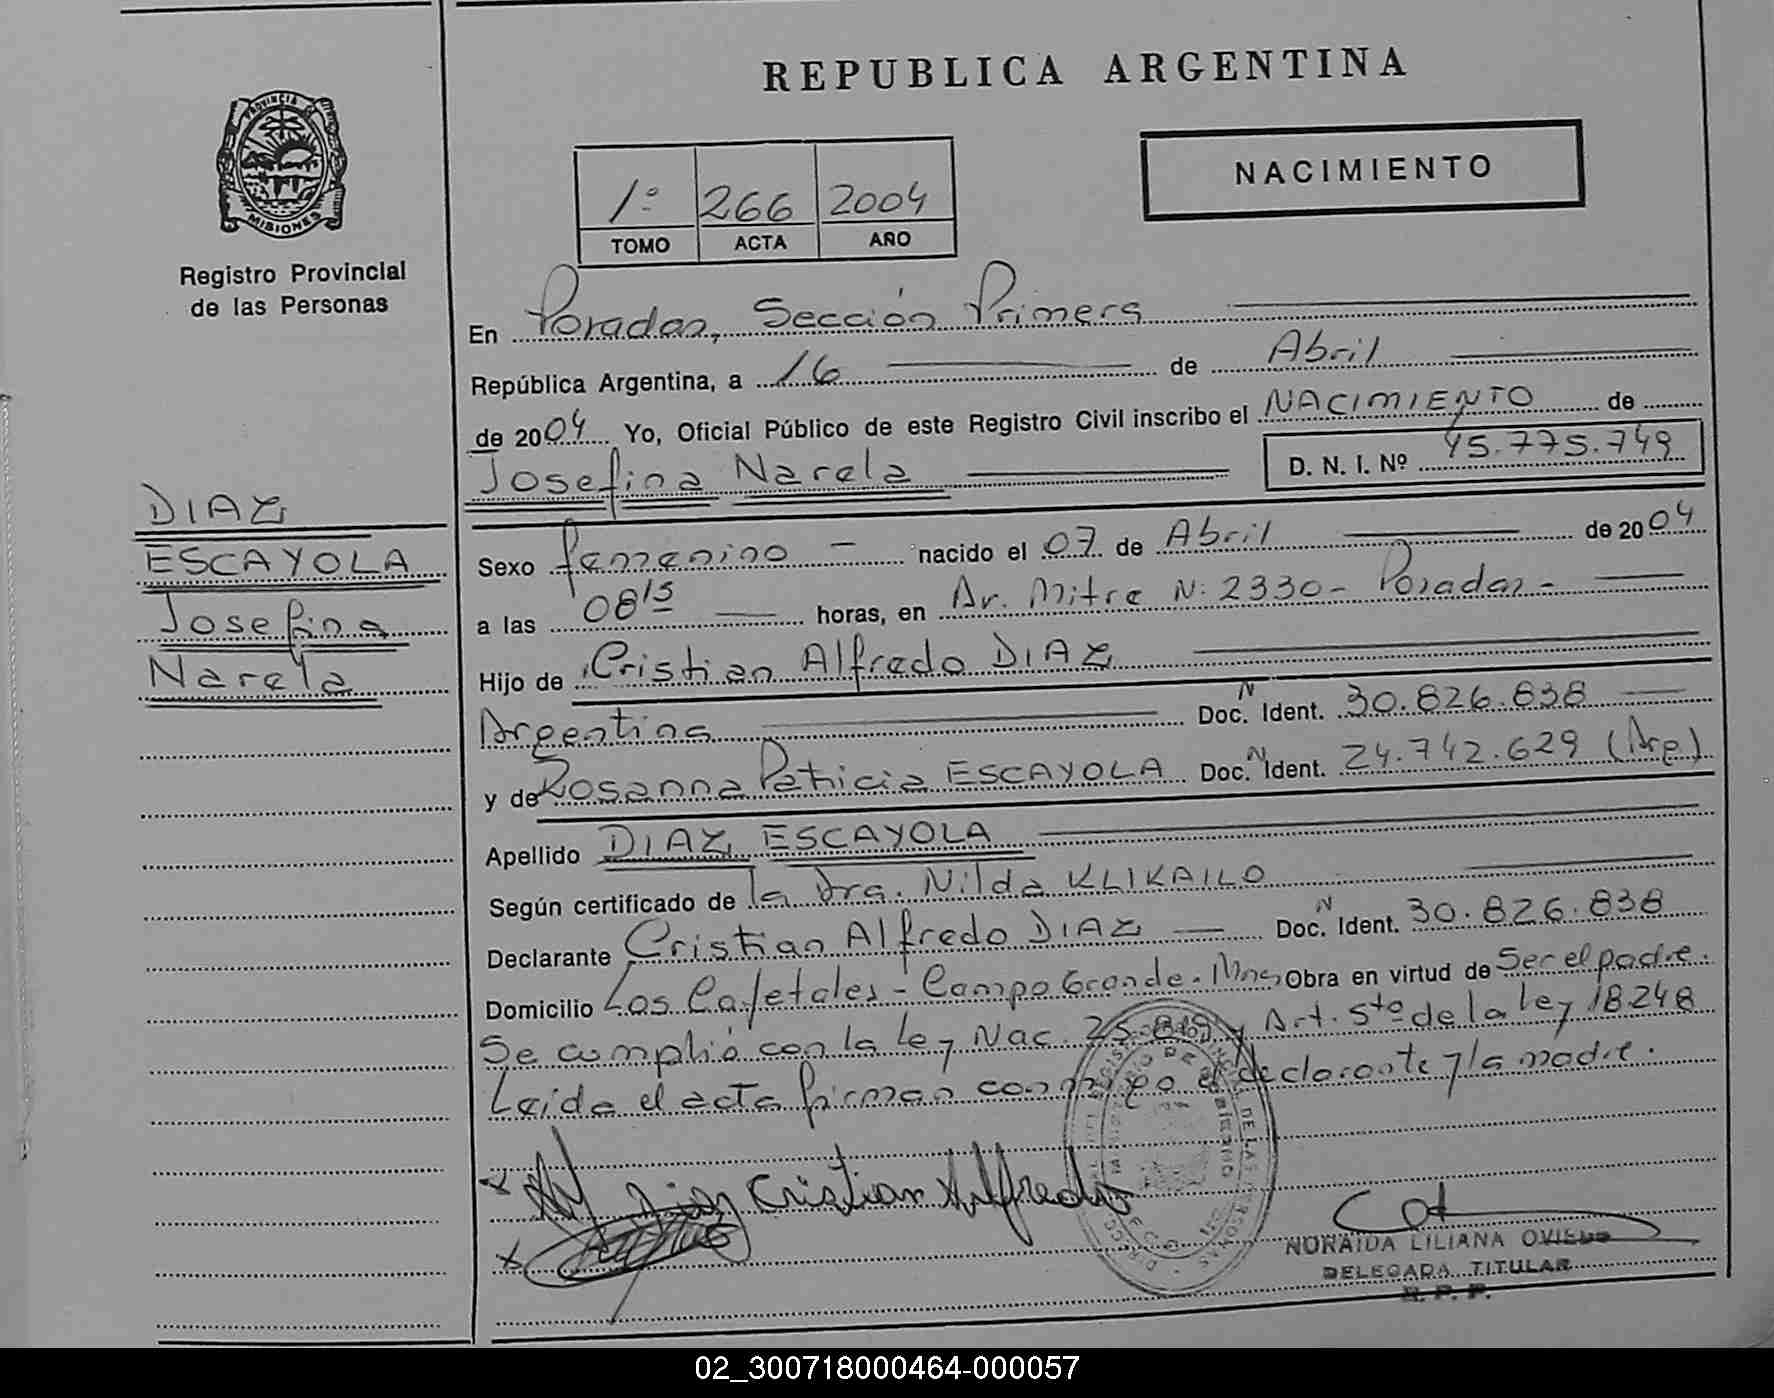 REPUBLICA ARGENTINA
PROVINCIA DE
MISIONES
Registro Provincial
de las Personas
1º 266 2004
TOMO ACTA AÑO
NACIMIENTO
En Posadas, Sección Primera
República Argentina, a 16 de Abril
de 2004 Yo, Oficial Público de este Registro Civil inscribo el NACIMIENTO de
Josefina Narela
D. N. I. Nº 45.775.749
DIAZ
ESCAYOLA
Josefina
Narela
Sexo femenino - nacido el 07 de Abril de 2004
a las 08 15 horas, en Av. Mitre Nº 2330 - Posadas -
Hijo de Cristian Alfredo DIAZ
Argentina Doc. N Ident. 30.826.838
y de Rosanna Patricia ESCAYOLA Doc. N Ident. 24.742.629 (Arg)
Apellido DIAZ ESCAYOLA
Según certificado de la Dra. Nilda KLIKAILO
Declarante Cristian Alfredo DIAZ Doc. N Ident. 30.826.838
Domicilio Los Cafetales - Campo Grande. Mnes Obra en virtud de Ser el padre.
Se cumplió con la ley Nac. y Art. 5to de la ley 18248
Leida el acta firman conmigo el declarante y la madre.
x Diaz Cristian Alfredo
x
NORAIDA LILIANA OVIEDO
DELEGADA TITULAR
R. P. P.
02_300718000464-000057